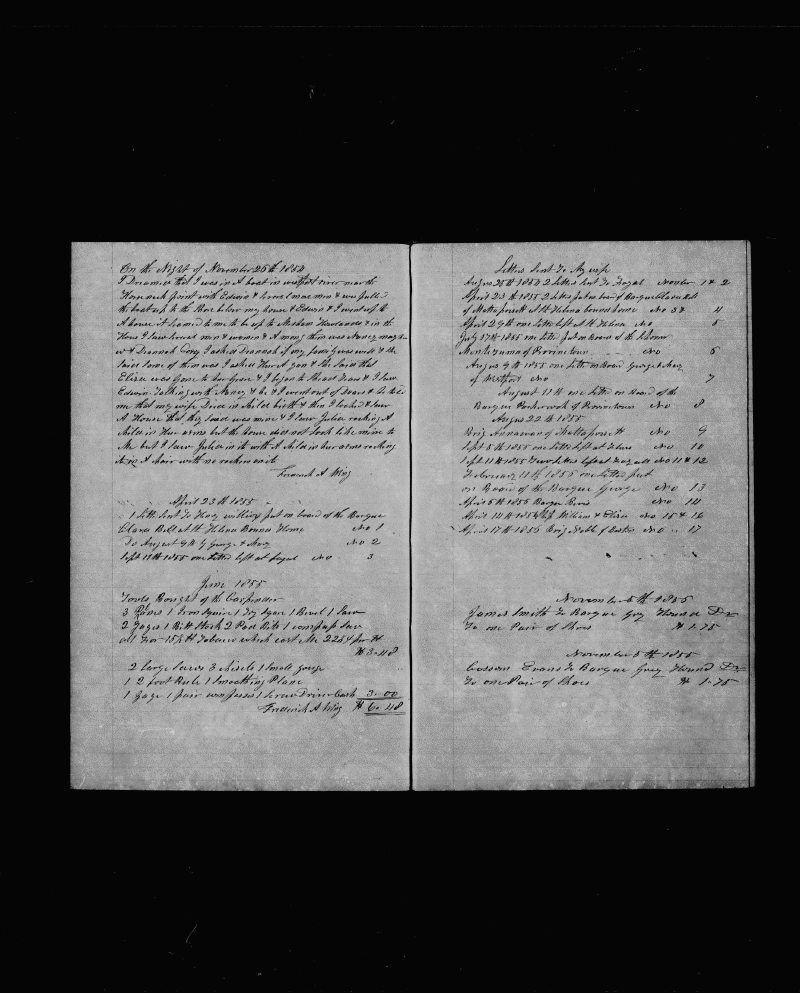 On the Night of November 25th 1854
I Dreamed that I was in A boat in westport river near the
Horse neck point with Edwin & Several more men & we pulled
the boat up to the Shor below my house & Edwin & I went up to
A house it seamd to me to be up to Mesham Howlands & in the
Hous I saw Several men & women & Among them was Nancy
& Drannah Cory I asked Drannah if my family was well & she
said some of them was I asked Hur A gan & She Said that
Eliza was Gone to her Grave & I began to Shead Tears & I saw
Edwin Talking with Nancy & C & I went out of Doars & he told
me that my wife Died in Child birth & then I looked & saw
A House that they said was mine & I saw Julia rocking A
Child in Hur arms but the house did not look like mine to
Me but I saw Julia in it with A Child in hur arms rocking
it in A chair with no rockers on it
Frederick A Wing
April 23th 1855
1 Letter Sent To Harvey put on board of the Barque
Clara Bell at St Helena Bound Home No 1
Do August 9th by George & Mary No 2
Sept 11th 1855 one Letter left at fayal No 3
June 1855
Tools Bought of the Carpender
3 Planes 1 Iron Square 1 Try Sqare 1 Bevel 1 Saw
2 Gages 1 Bitt Stock 2 Pod Bits 1 compass Saw
all For 15 1/2 lb Tobacco which cost Me 22 1/2 per lb
$ 3.48
2 large Screws 3 chisels 1 Small gouge
1 2 foot Rule 1 Smoothing Plane
1 Gage 1 pair compasses 1 Screw Driver Cash 3.00
Frederick A Wing $ 6.48
Letters Sent To My wife
Augus 25th 1854 2 Letters Sent To Fayal Number 1 & 2
April 23th 1855 2 Letters put on board of Barque Clara Bell
of Mattapoisett at St Helena bound home No 3 & 4
April 29th one Letter left at St Helena No 5
July 17th 1855 one Letter put on Board of the Schooner
Montezuma of Provincetown No 6
Augus 9th 1855 one Letter on Board George & Mary
of Westport No 7
August 11th one Letter on Board of the
Barque Parker Cook of Provincetown No 8
Augus 22th 1855
Brig Annawan of Mattapoisett No 9
Sept 5th 1855 one Letter left at Flores No 10
Sept 11th 1855 Two Letters left at Fayall No 11 & 12
February 11th 1856 one Letter put
on Board of the Barque George No 13
April 5th 1856 Barque No 14
April 14th 1856 Ship William & Eliza No 15 & 16
April 17th 1856 Brig No 17
November 5th 1855
James Smith To Barque Grey Hound Dr
To one Pair of Shoes $ 1.75
November 5th 1855
Cossom Evans To Barque Grey Hound Dr
To one Pair of Shoes $ 1.75